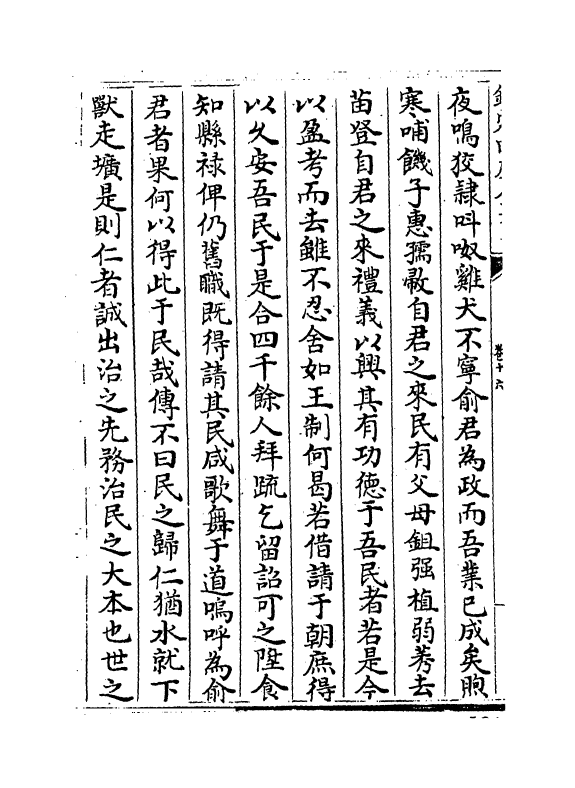 夜鳴狡隷呌呶雞犬不寧俞君為政而吾業已成矣煦
寒哺饑子惠孺嫠自君之來民有父母鉏强植弱莠去
苗登自君之來禮義以興其有功德于吾民者若是今
以盈考而去雖不忍舍如王制何曷若借請于朝庶得
以久安吾民于是合四千餘人拜疏乞留詔可之陞食
知縣禄俾仍舊職既得請其民咸歌舞于道嗚呼為俞
君者果何以得此于民哉傳不曰民之歸仁猶水就下
獸走壙是則仁者誠出治之先務治民之大本也世之
卷十六